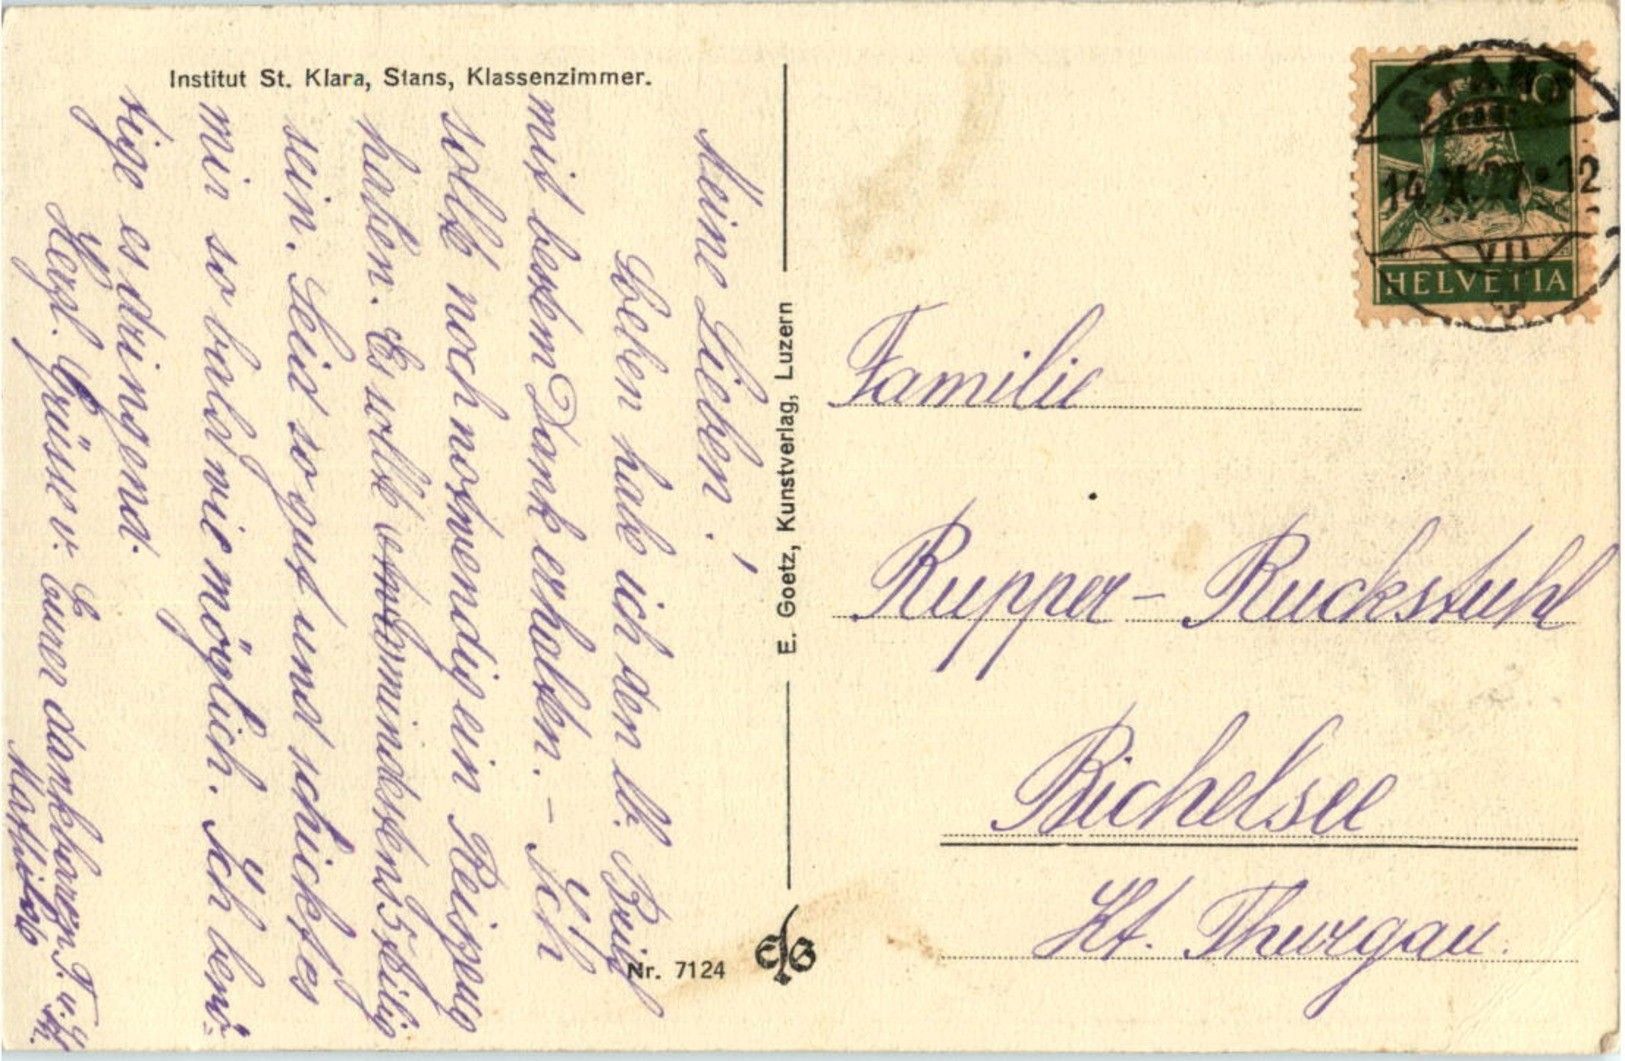 Institut St. Klara, Stans, Klassenzimmer.
Meine Lieben!
Soeben habe ich den lb. Brief
mit bestem Dank erhalten. – Ich
sollte noch notwendig ein Reiszeug
haben. Es sollte mindestens 5teilig
sein. Seid so gut und schickt es
mir so bald wie möglich. Ich benö-
tige es dringend.
Herzl. Grüsse v. Eurer dankbaren T. u.
E. Goetz, Kunstverlag, Luzern
Nr. 7124
EG
10
HELVETIA
STANS
14.X.27.-12
VII
Familie
Rupper - Ruckstuhl
Bichelsee
Kt. Thurgau.